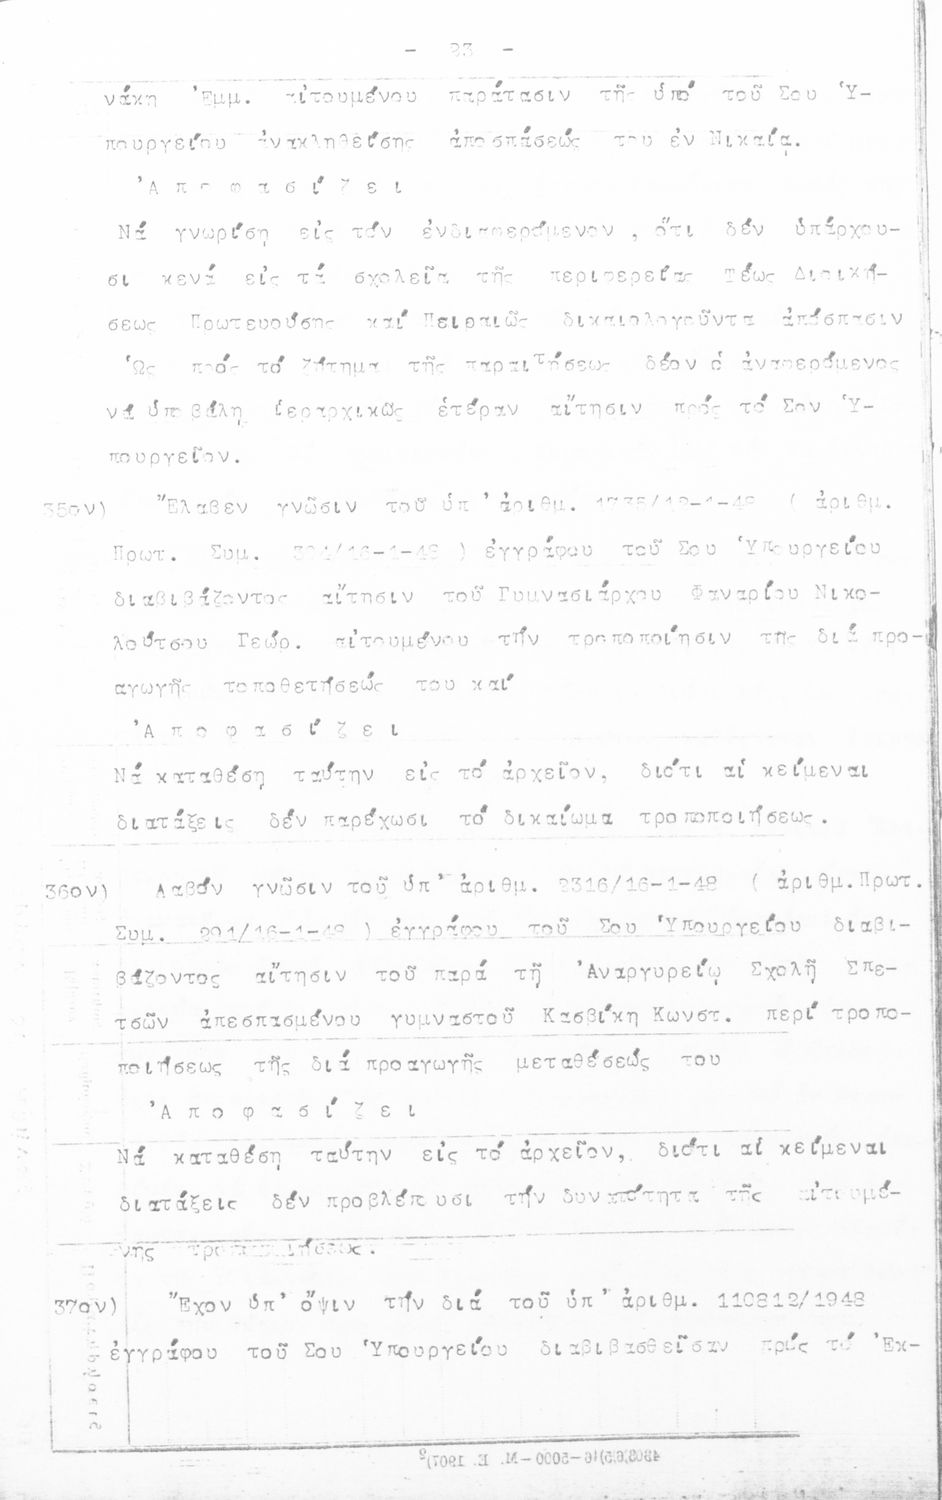 - 23 -
νάκη Ἐμμ. αἰτουμένου παράτασιν τῆς ὑπό τοῦ Σου Ὑ-
πουργείου ἀνακληθείσης ἀποσπάσεώς του ἐν Νικαίᾳ.
Ἀ π ο φ α σ ί ζ ε ι
Νά γνωρίση εἰς τόν ἐνδιαφερόμενον , ὅτι δέν ὑπάρχου-
σι κενά εἰς τά σχολεῖα τῆς περιφερείας τέως Διοική-
σεως Πρωτευούσης καί Πειραιῶς δικαιολογοῦντα ἀπόσπασιν
Ὡς πρός τό ζήτημα τῆς παραιτήσεως δέον ὁ ἀναφερόμενος
νά ὑποβάλῃ ἱεραρχικῶς ἑτέραν αἴτησιν πρός τό Σον Ὑ-
πουργεῖον.
35ον) Ἔλαβεν γνῶσιν τοῦ ὑπ' ἀριθμ. ( ἀριθμ.
Πρωτ. Συμ. ) ἐγγράφου τοῦ Σου Ὑπουργείου
διαβιβάζοντος αἴτησιν τοῦ Γυμνασιάρχου Φαναρίου Νικο-
λούτσου Γεώρ. αἰτουμένου τήν τροποποίησιν της διά προ-
αγωγῆς τοποθετήσεώς του καί
Ἀ π ο φ α σ ί ζ ε ι
Νά καταθέση ταύτην εἰς τό ἀρχεῖον, διότι αἱ κείμεναι
διατάξεις δέν παρέχωσι τό δικαίωμα τροποποιήσεως.
36ον) Λαβόν γνῶσιν τοῦ ὑπ' ἀριθμ. 2316/16-1-48 ( ἀριθμ.Πρωτ.
Συμ. ) ἐγγράφου τοῦ Σου Ὑπουργείου διαβι-
βάζοντος αἴτησιν τοῦ παρά τῇ Ἀναργυρείῳ Σχολῇ Σπε-
τσῶν ἀπεσπασμένου γυμναστοῦ Κασβίκη Κωνστ. περί τροπο-
ποιήσεως τῆς διά προαγωγῆς μεταθέσεώς του
Ἀ π ο φ α σ ί ζ ε ι
Νά καταθέση ταύτην εἰς τό ἀρχεῖον, διότι αἱ κείμεναι
διατάξεις δέν προβλέπουσι τήν δυνατότητα τῆς αἰτουμέ-
νης τροποποιήσεως.
37ον) Ἔχον ὑπ' ὄψιν τήν διά τοῦ ὑπ' ἀριθμ. 110812/1948
ἐγγράφου τοῦ Σου Ὑπουργείου διαβιβασθεῖσαν πρός τό Ἐκ-